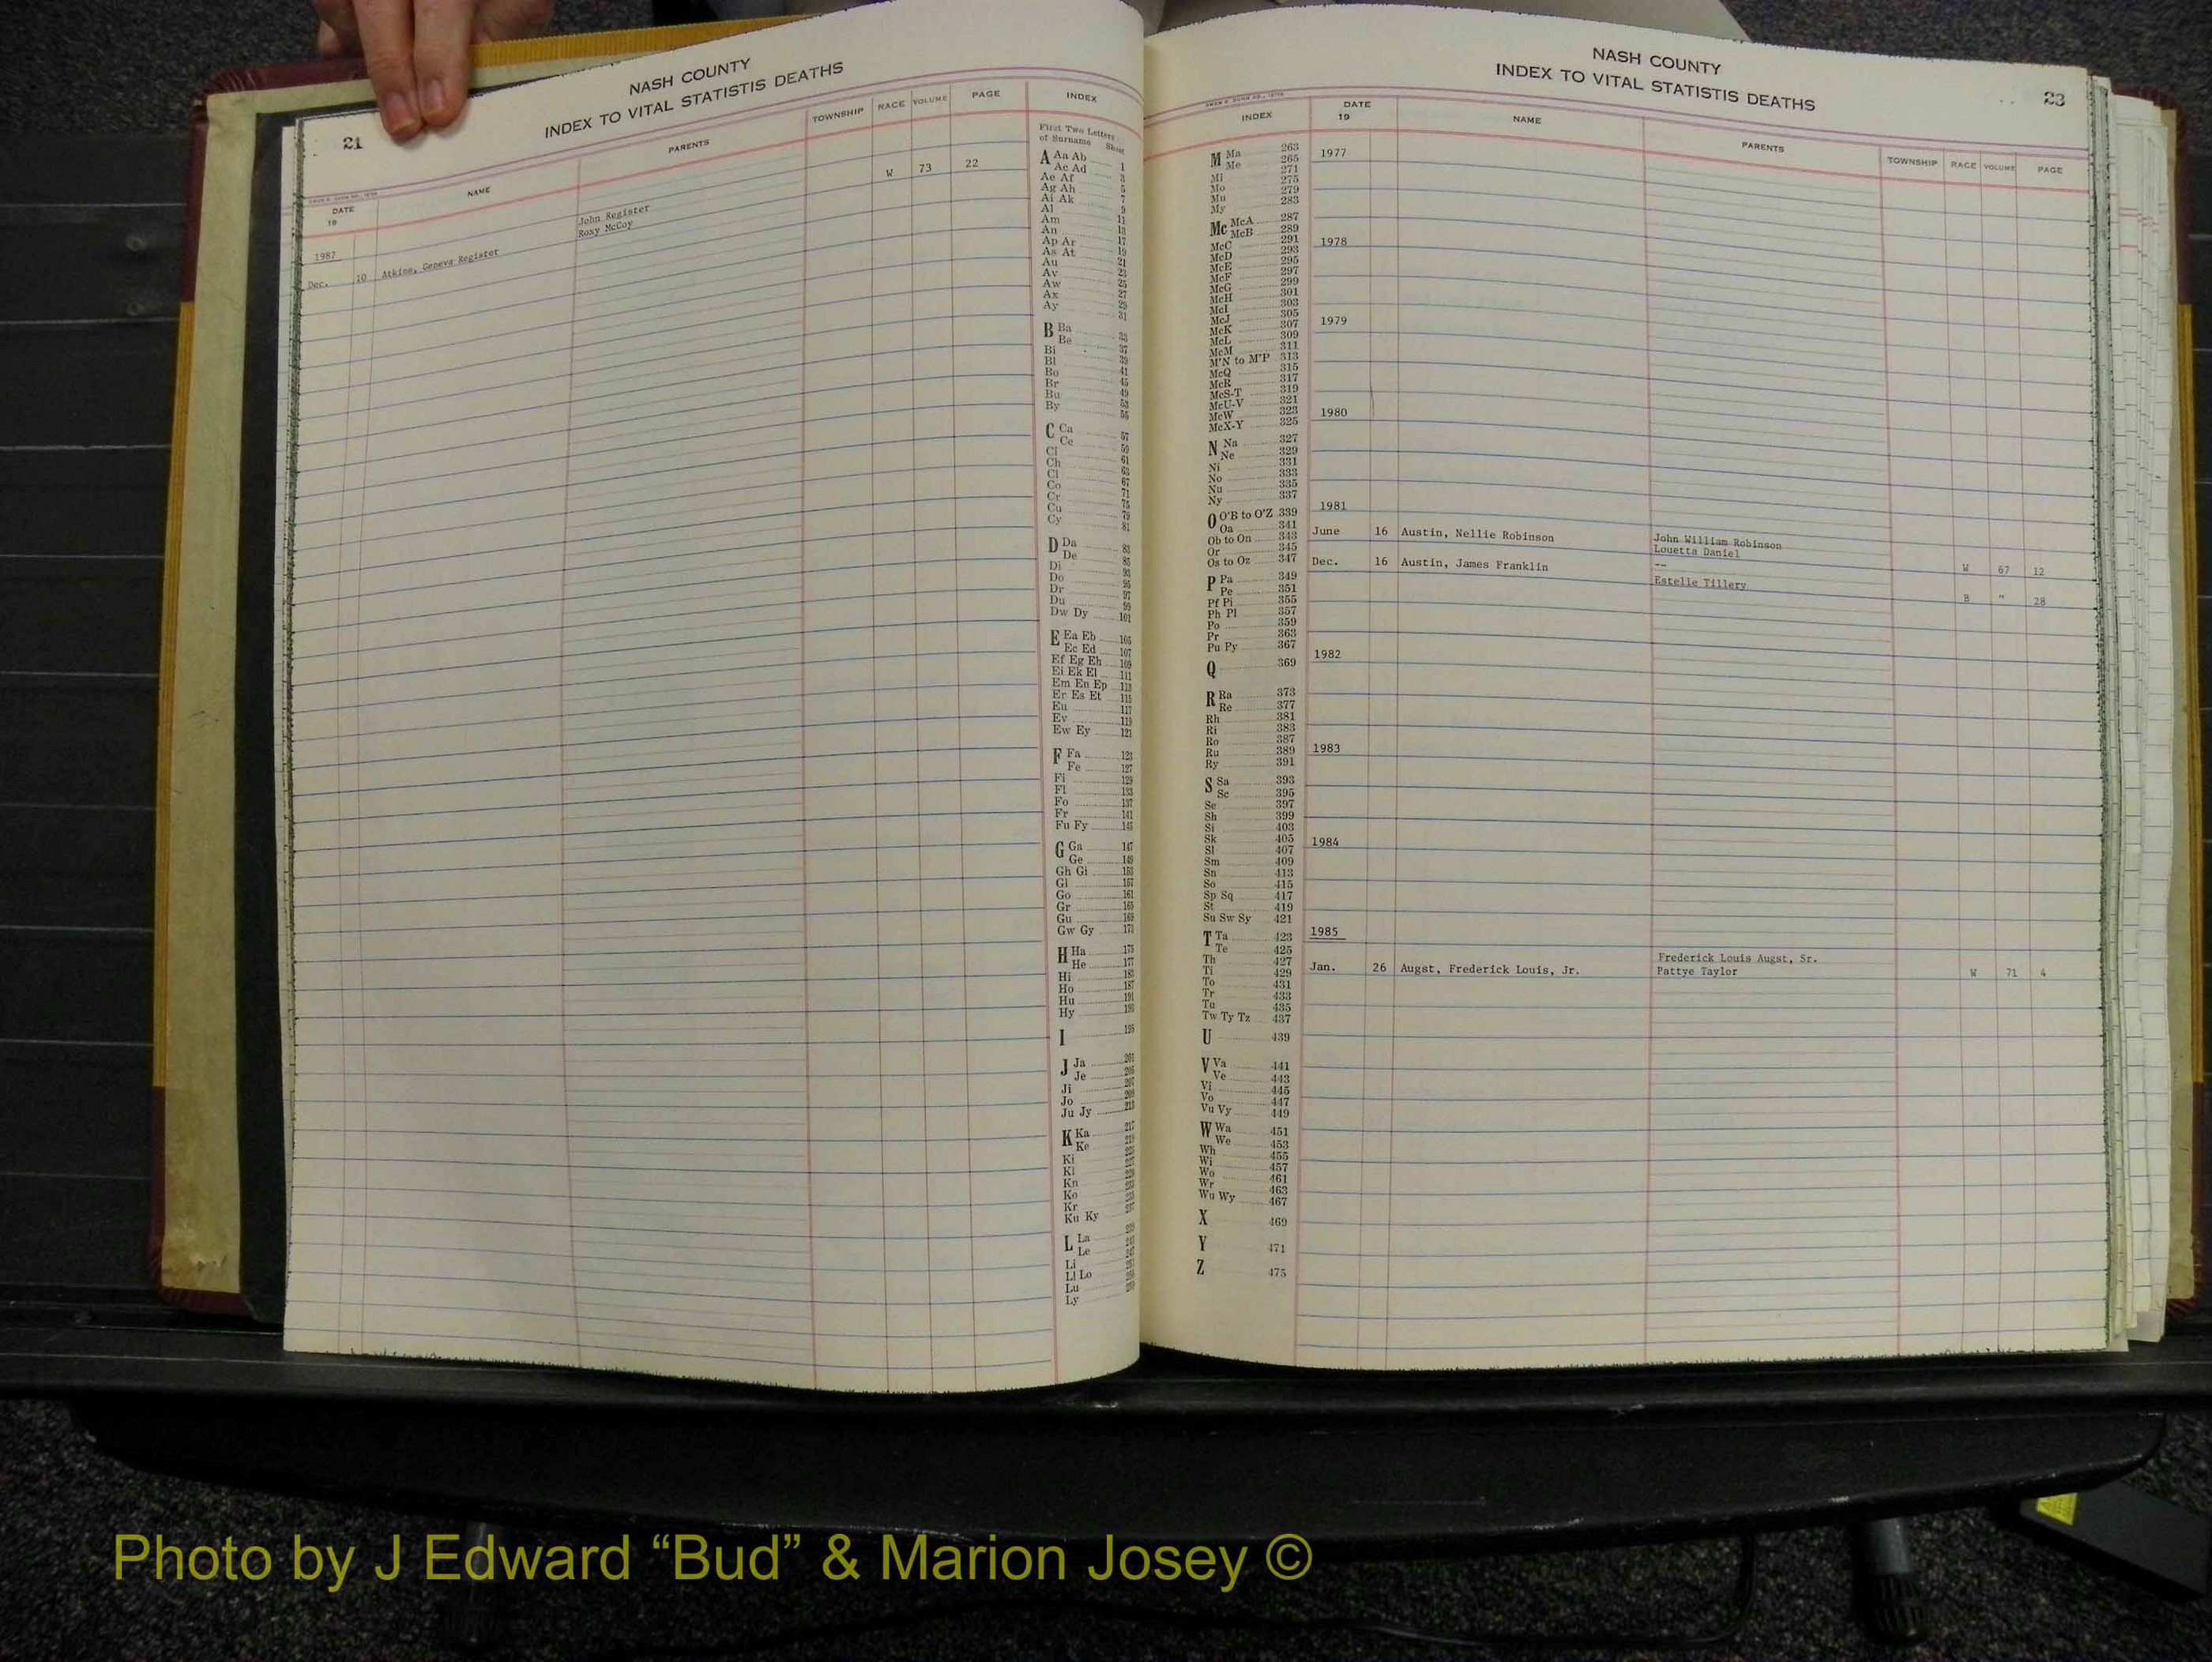 21
NASH COUNTY
INDEX TO VITAL STATISTIS DEATHS
DATE
19
NAME
PARENTS
TOWNSHIP
RACE
VOLUME
PAGE
INDEX
1987
Dec. 10 Atkins, Geneva Register
John Register
Roxy McCoy
W 73 22
First Two Letters
of Surname Sheet
A Aa Ab 1
Ac Ad 3
Ae Af 5
Ag Ah 7
Ai Ak 9
Al 11
Am 13
An 17
Ap Ar 19
As At 21
Au 23
Av 25
Aw 27
Ax 29
Ay 31
B Ba
Be
Bi
Bl
Bo
Br
Bu
By
C Ca
Ce
Ci
Ch
Cl
Co
Cr
Cu
Cy
D Da
De
Di
Do
Dr
Du
Dw Dy
E Ea Eb 105
Ec Ed 107
Ef Eg Eh 109
Ei Ek El 111
Em En Ep 113
Er Es Et 115
Eu 117
Ev 119
Ew Ey 121
F Fa 123
Fe 127
Fi 129
Fl 133
Fo 137
Fr 141
Fu Fy 145
G Ga 147
Ge 149
Gh Gi 153
Gl 157
Go 161
Gr 165
Gu 169
Gw Gy 173
H Ha 175
He 177
Hi 183
Ho 187
Hu 191
Hy
I
J Ja
Je
Ji
Jo
Ju Jy
K Ka
Ke
Ki
Kl
Kn
Ko
Kr
Ku Ky
L La
Le
Li
Ll Lo
Lu
Ly
NASH COUNTY
INDEX TO VITAL STATISTIS DEATHS
23
INDEX
DATE
19
NAME
PARENTS
TOWNSHIP
RACE
VOLUME
PAGE
M Ma 263
Me 265
Mi 271
Mo 275
Mu 279
My 283
Mc McA 287
McB 289
McC 291
McD 293
McE 295
McF 297
McG 299
McH 301
McI 303
McJ 305
McK 307
McL 309
McM 311
M'N to M'P 313
McQ 315
McR 317
McS-T 319
McU-V 321
McW 323
McX-Y 325
N Na 327
Ne 329
Ni 331
No 333
Nu 335
Ny 337
O O'B to O'Z 339
Oa 341
Ob to On 343
Or 345
Os to Oz 347
P Pa 349
Pe 351
Pf Pi 355
Ph Pl 357
Po 359
Pr 363
Pu Py 367
Q 369
R Ra 373
Re 377
Rh 381
Ri 383
Ro 387
Ru 389
Ry 391
S Sa 393
Sc 395
Se 397
Sh 399
Si 403
Sk 405
Sl 407
Sm 409
Sn 413
So 415
Sp Sq 417
St 419
Su Sw Sy 421
T Ta 423
Te 425
Th 427
Ti 429
To 431
Tr 433
Tu 435
Tw Ty Tz 437
U 439
V Va 441
Ve 443
Vi 445
Vo 447
Vu Vy 449
W Wa 451
We 453
Wh 455
Wi 457
Wo 461
Wr 463
Wu Wy 467
X 469
Y 471
Z 475
1977
1978
1979
1980
1981
June 16 Austin, Nellie Robinson
John William Robinson
Louetta Daniel
W 67 12
Dec. 16 Austin, James Franklin
--
Estelle Tillery
B " 28
1982
1983
1984
1985
Jan. 26 Augst, Frederick Louis, Jr.
Frederick Louis Augst, Sr.
Pattye Taylor
W 71 4
Photo by J Edward “Bud” & Marion Josey ©